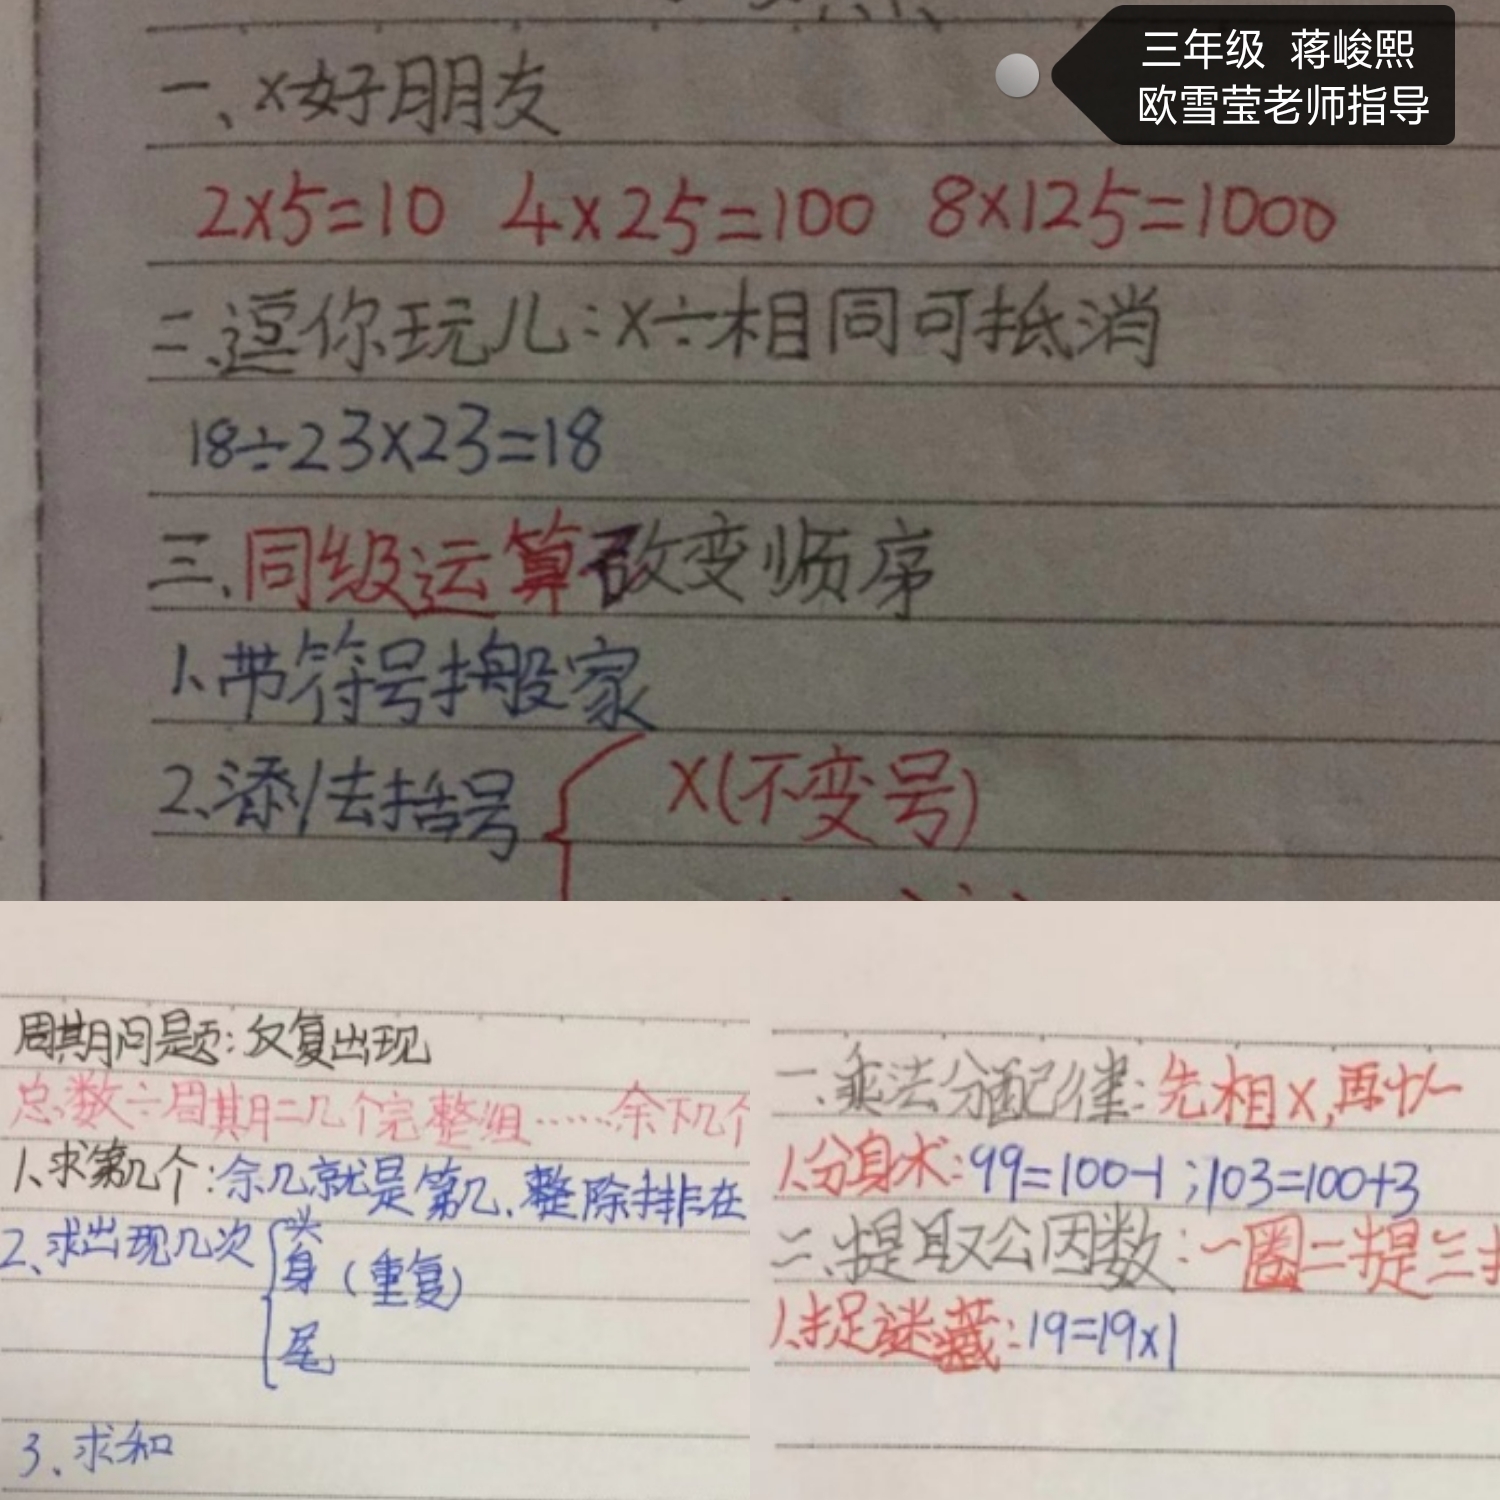 三年级 蒋峻熙
欧雪莹老师指导
一、×好朋友
2×5=10 4×25=100 8×125=1000
二、逗你玩儿:×÷相同可抵消
18÷23×23=18
三、同级运算改变顺序
1、带符号搬家
2、添/去括号 ×(不变号)
周期问题:反复出现
总数÷周期=几个完整组……余下几个
1、求第几个:余几就是第几,整除排在
2、求出现几次 头
身(重复)
尾
3、求和
一、乘法分配律:先相×,再
1、分身术:99=100-1;103=100+3
二、提取公因数:一圈二提三
1、捉谜藏:19=19×1